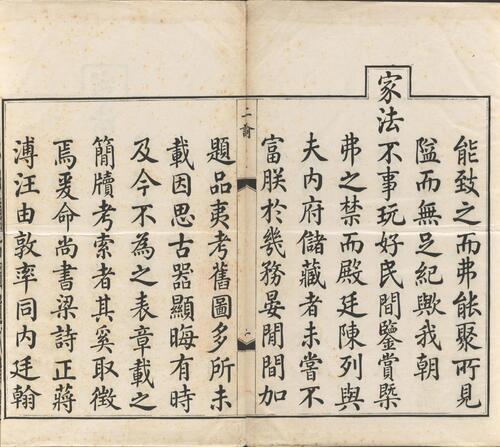 能致之而弗能聚所見
隘而無足紀歟我朝
家法不事玩好民間鑒賞槩
弗之禁而殿廷陳列與
夫内府儲藏者未嘗不
富朕於幾務晏閒間加
二諭
題品夷考舊圖多所未
載因思古器顯晦有時
及今不為之表章載之
簡牘考索者其奚取徵
焉爰命尚書梁詩正蔣
溥汪由敦率同内廷翰